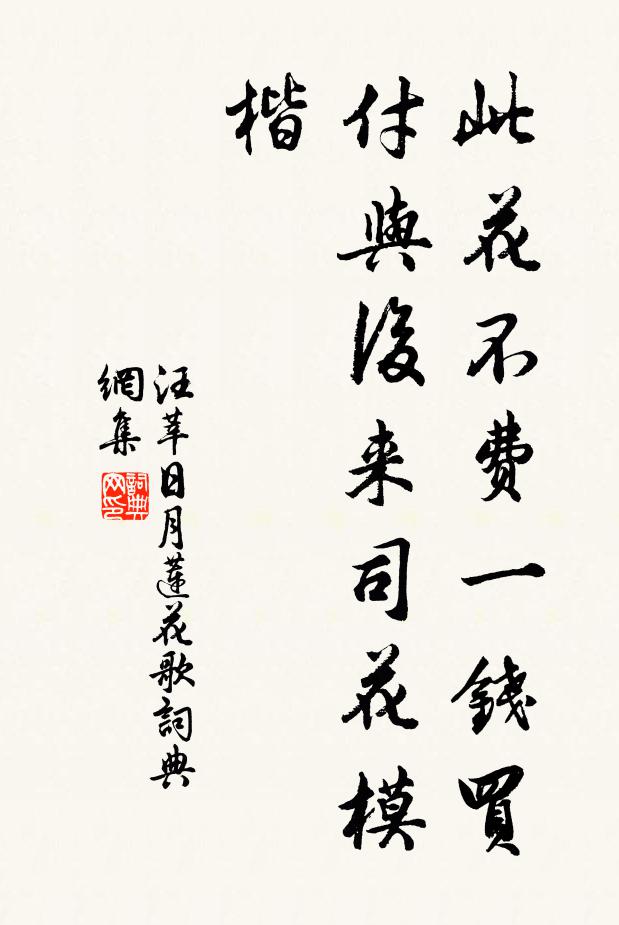 此花不費一錢買
付與後来司花模
楷
汪莘日月蓮花歌詞典
網集
詞典
网印